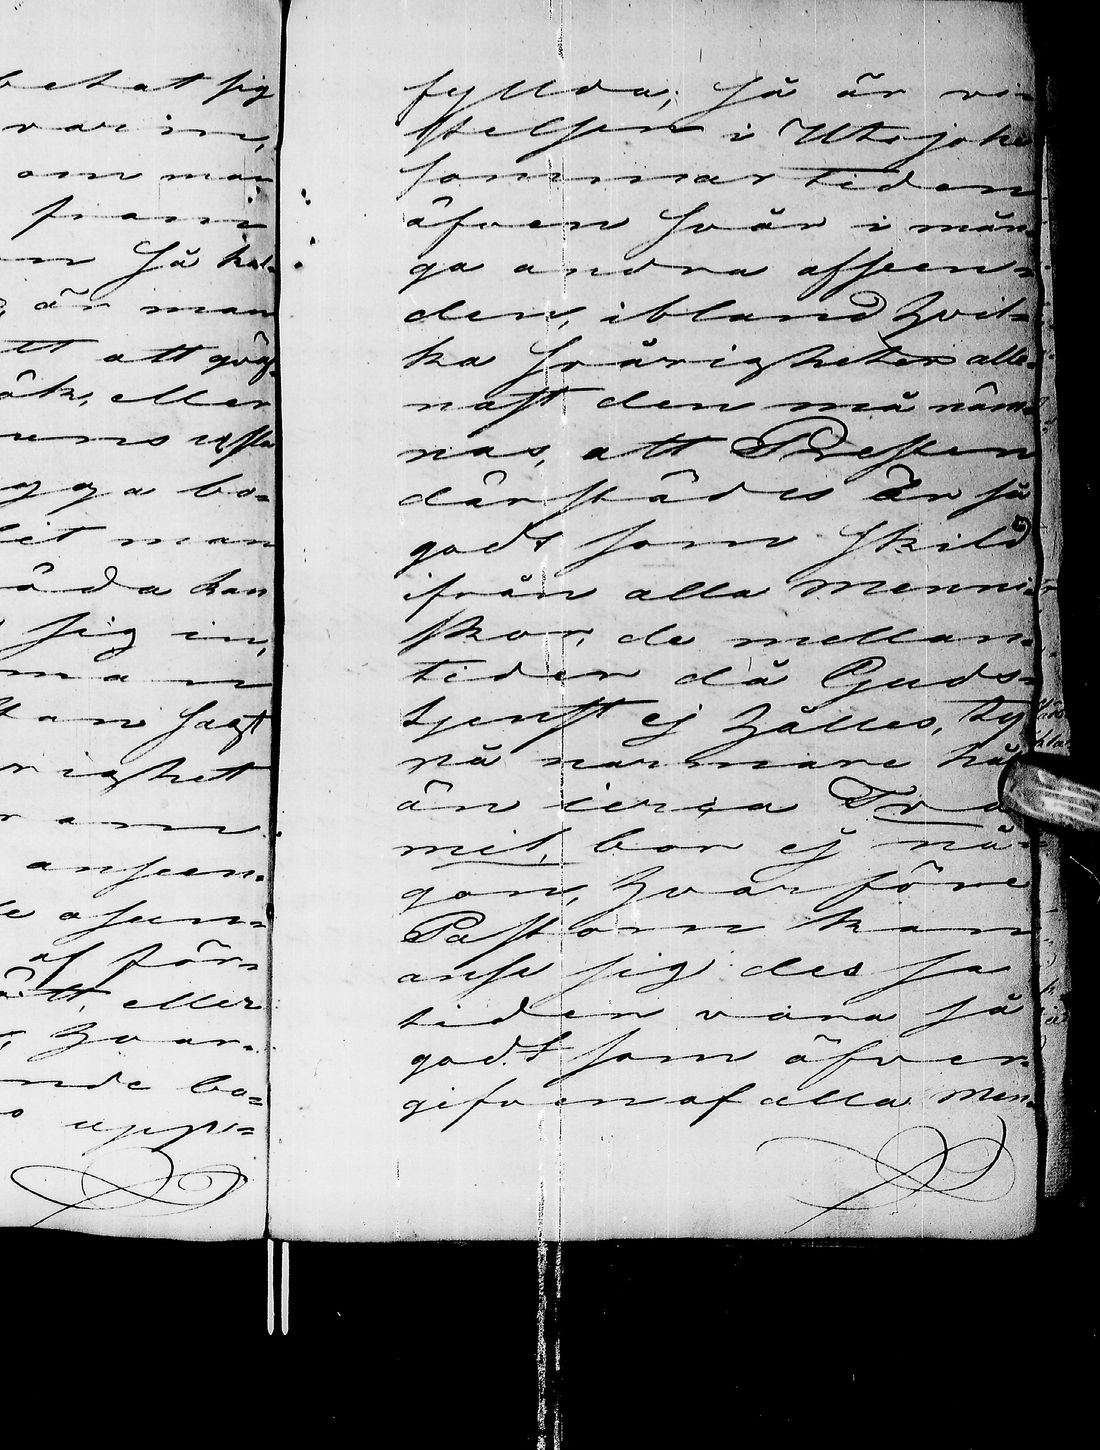 betat sig
var in,
om man
fram i
en Så kal-
är man
ett att göra
sök, eller
rens usla
ygga bo-
lit man
åda kan
sig in,
man
kan sagt
righet
ram
anseen-
le aseen-
af för-
ått, eller
hvar-
nde bo-
upp-
fyllda; Så är vi-
stelsen i Utsjoki
sommartiden
äfven svår i mån-
ga andra afseen-
den, ibland hvil-
ka svårigheter alle-
nast den må näm-
nas, att Presten
därstädes är så
godt som skild
ifrån alla menni-
skor, de mellan-
tider då Guds-
tjenst ej hålles, ty
på närmare håll
än circa Tre
mil, bor ej nå-
gon, hvarföre
Pastorn kan
anse sig dessa
tider vara så
godt som öfver-
gifven af alla Men-